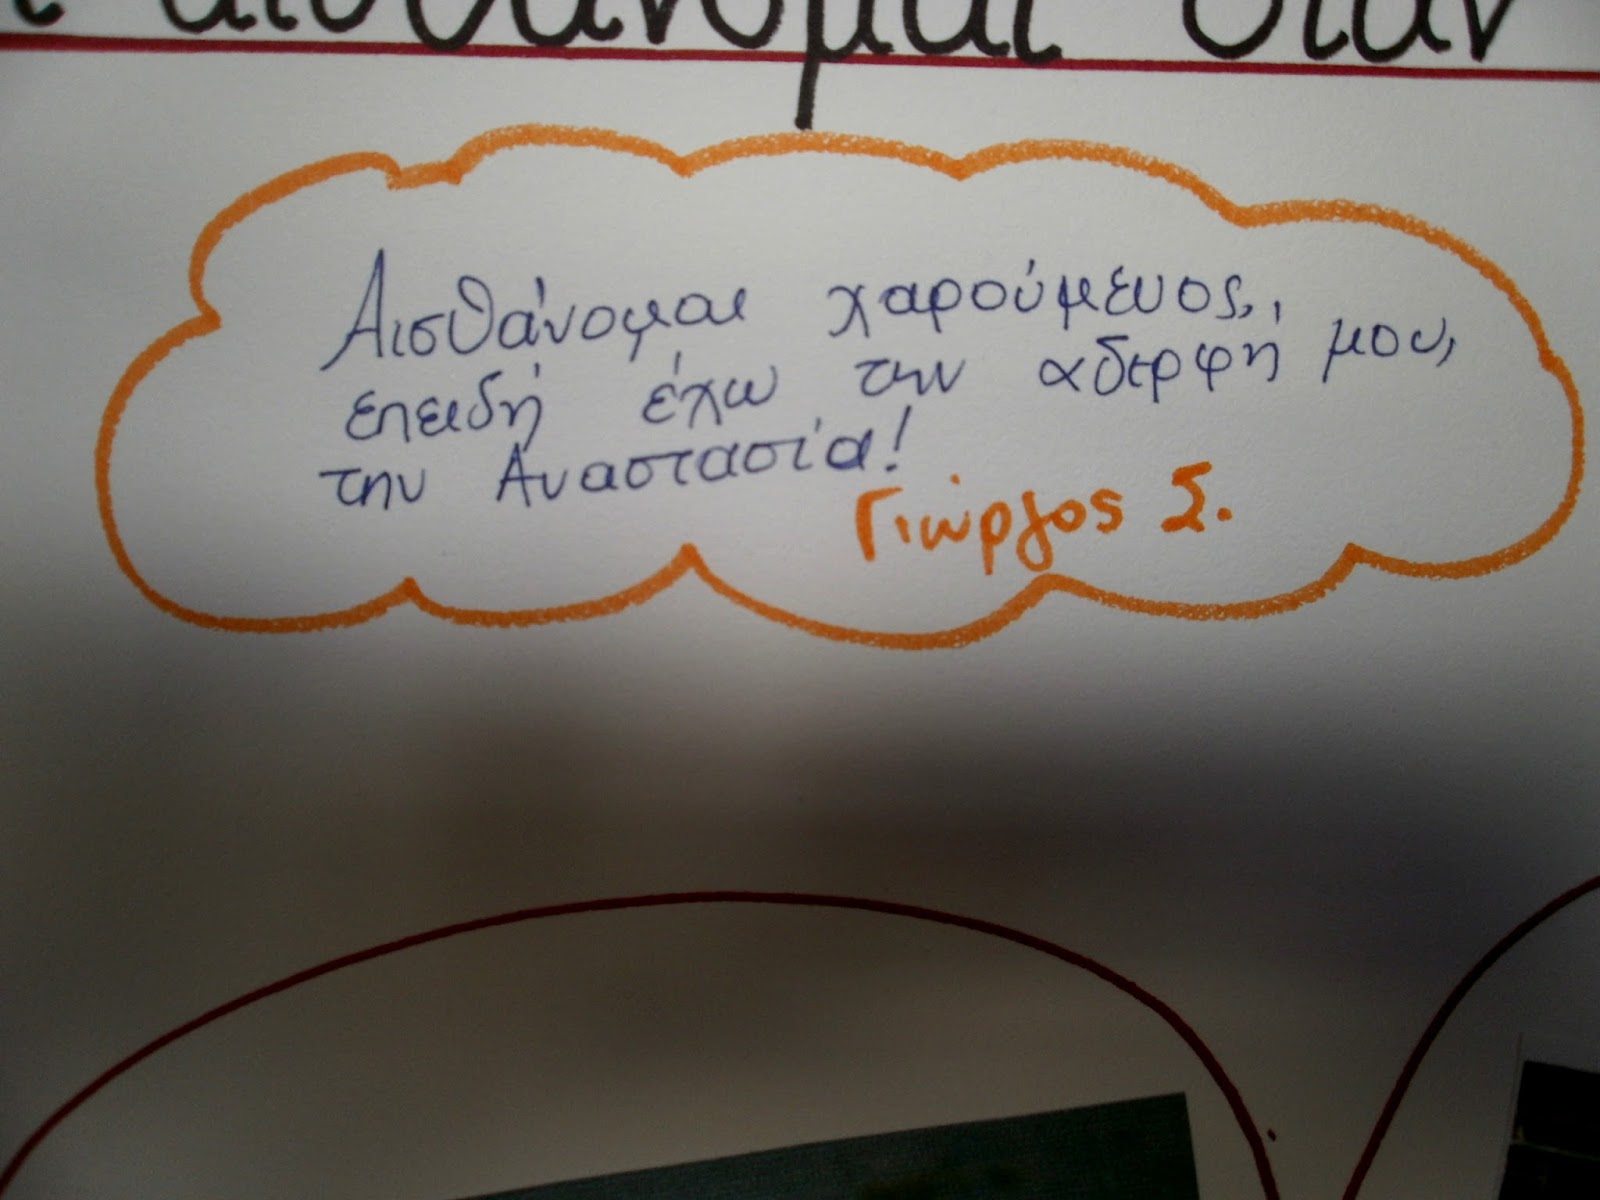 αισθάνομαι όταν
Αισθάνομαι χαρούμενος,
επειδή έχω την αδερφή μου,
την Αναστασία!
Γιώργος Σ.